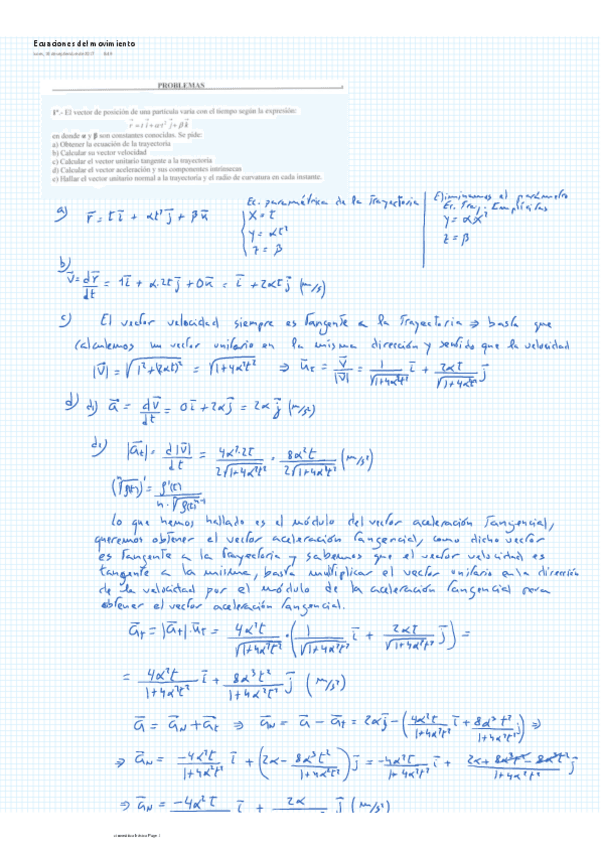 Ecuaciones del movimiento
PROBLEMAS
1º.- El vector de posición de una partícula varía con el tiempo según la expresión:
r⃗ = t i⃗ + α t² j⃗ + β k⃗
en donde α y β son constantes conocidas. Se pide:
a) Obtener la ecuación de la trayectoria
b) Calcular su vector velocidad
c) Calcular el vector unitario tangente a la trayectoria
d) Calcular el vector aceleración y sus componentes intrínsecas
e) Hallar el vector unitario normal a la trayectoria y el radio de curvatura en cada instante.
a) r̄ = t ī + αt² j̄ + β k̄
Ec. paramétrica de la Trayectoria
x = t
y = αt²
z = β
Eliminamos el parámetro
Ec. Tray. Explícitas
y = αx²
z = β
b)
v̄ = dr̄/dt = 1ī + α·2t j̄ + 0k̄ = ī + 2αt j̄ (m/s)
c) El vector velocidad siempre es Tangente a la Trayectoria ⇒ basta que
calculemos un vector unitario en la misma dirección y sentido que la velocidad
|v̄| = √(1² + (2αt)²) = √(1+4α²t²) ⇒ ū_t = v̄/|v̄| = 1/√(1+4α²t²) ī + 2αt/√(1+4α²t²) j̄
d) d₁) ā = dv̄/dt = 0ī + 2αj̄ = 2α j̄ (m/s²)
d₂) |ā_t| = d|v̄|/dt = 4α²·2t/2√(1+4α²t²) = 8α²t/2√(1+4α²t²) (m/s²)
(ⁿ√f(t))' = f'(t)/n·ⁿ√f(t)ⁿ⁻¹
Lo que hemos hallado es el módulo del vector aceleración Tangencial,
queremos obtener el vector aceleración Tangencial, como dicho vector
es Tangente a la Trayectoria y sabemos que el vector velocidad es
tangente a la misma, basta multiplicar el vector unitario en la dirección
de la velocidad por el módulo de la aceleración Tangencial para
obtener el vector aceleración Tangencial.
ā_t = |ā_t|·ū_t = 4α²t/√(1+4α²t²) · (1/√(1+4α²t²) ī + 2αt/√(1+4α²t²) j̄) =
= 4α²t/1+4α²t² ī + 8α³t²/1+4α²t² j̄ (m/s²)
ā = ā_N + ā_t ⇒ ā_N = ā − ā_t = 2αj̄ − (4α²t/1+4α²t² ī + 8α³t²/1+4α²t² j̄) ⇒
⇒ ā_N = −4α²t/1+4α²t² ī + (2α − 8α³t²/1+4α²t²) j̄ = −4α²t/1+4α²t² ī + 2α + 8α³t² − 8α³t²/1+4α²t² j̄
⇒ ā_N = −4α²t ī + 2α j̄ (m/s²)